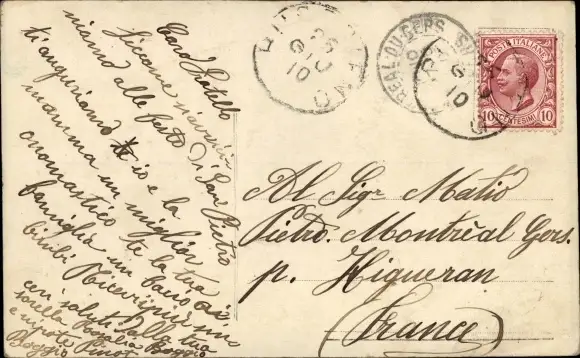 Caro Fratello
Siccome siavicini
niamo alle feste di San Pietro
ti anguriamo io e la
mamma un miglior
onomastico te la tua
famiglia un bacio ai
bimbi Ricevi più
con saluti dalla tua
sorella Rosalia Boggio
e nipote Pinot
Boggio
25
GIU
10
REAL GERS
10
POSTE ITALIANE
10 CENTESIMI 10
Al Sigr Matio
Pietro. Montréal Gers.
p. Higueran
(France)